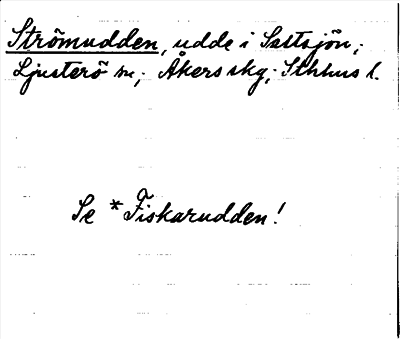 Strömudden, udde i Saltsjön,;
Ljusterö sn; Åkers skg; Sthlms l.
Se *Fiskarudden!